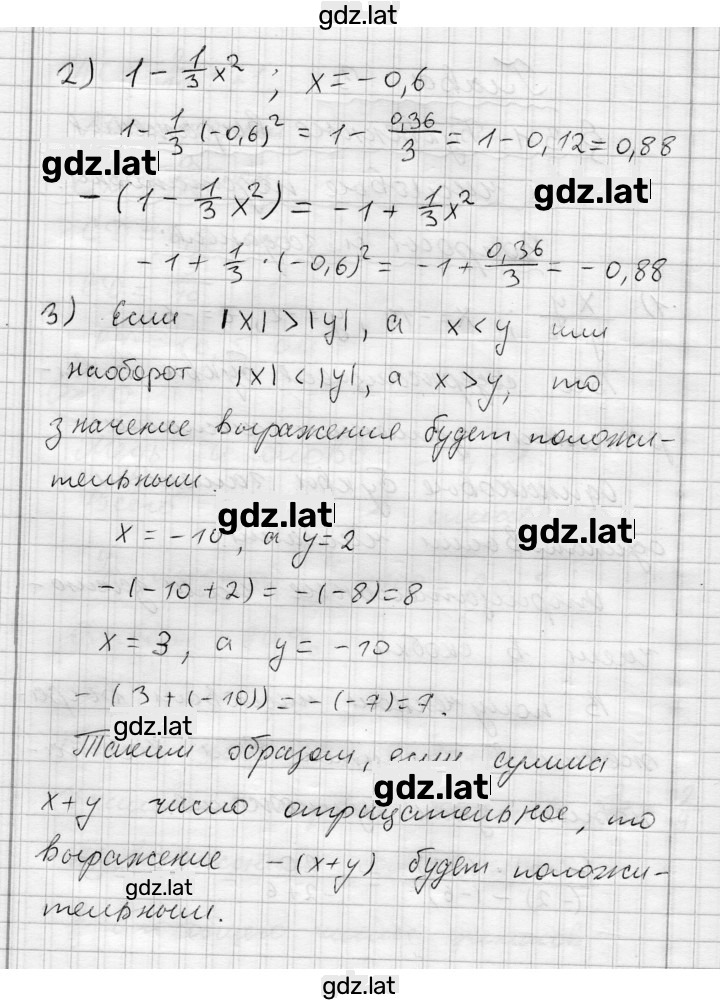 gdz.lat
2) 1 - 1/3 x² ; x = -0,6
1 - 1/3 (-0,6)² = 1 - 0,36/3 = 1 - 0,12 = 0,88
gdz.lat
gdz.lat
-(1 - 1/3 x²) = -1 + 1/3 x²
-1 + 1/3 · (-0,6)² = -1 + 0,36/3 = -0,88
3) Если |x| > |y|, а x < y или
наоборот |x| < |y|, а x > y, то
значение выражения будет положи-
тельным.
gdz.lat
gdz.lat
x = -10, а y = 2
-(-10 + 2) = -(-8) = 8
x = 3, а y = -10
-(3 + (-10)) = -(-7) = 7.
gdz.lat
Таким образом, если сумма
gdz.lat
x+y число отрицательное, то
выражение -(x+y) будет положи-
gdz.lat
тельным.
gdz.lat